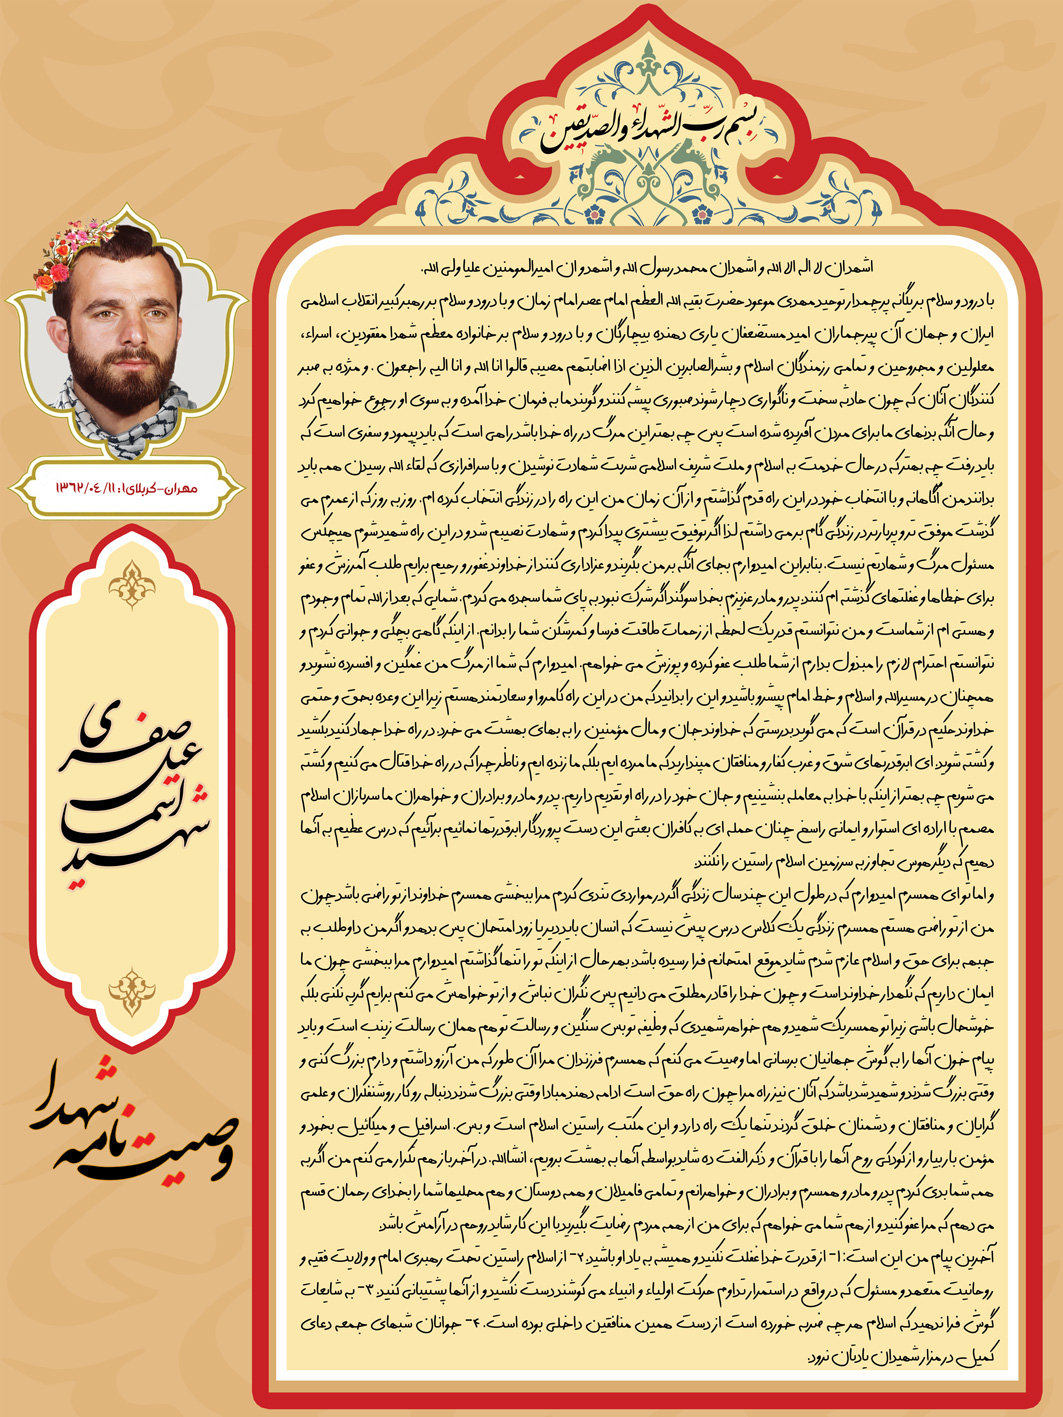 بسم ربّ الشهداء والصدیقین
اشهدان لا اله الا الله و اشهدان محمد رسول الله و اشهدو ان امیرالمومنین علیا ولی الله.
با درود و سلام بر یگانه پرچمدار توحید مهدی موعود حضرت بقیه الله العظم امام عصر امام زمان و با درود و سلام بر رهبر کبیر انقلاب اسلامی
ایران و جهان آن پیر جماران امید مستضعفان یاری دهنده بیچارگان و با درود و سلام بر خانواده معظم شهدا مفقودین، اسراء،
معلولین و مجروحین و تمامی رزمندگان اسلام و بشرالصابرین الذین اذا اضابتهم مصیبه قالوا انا الله و انا الیه راجعون . و مژده به صبر
کنندگان آنان که چون حادثه سخت و ناگواری دچار شوند صبوری پیشه کنند و گویند ما به فرمان خدا آمده و به سوی او رجوع خواهیم کرد
و حال آنگه بدنهای ما برای مردن آفریده شده است پس چه بهتر این مرگ در راه خدا باشد راهی است که باید پیمود و سفری است که
باید رفت چه بهتر که در حال خدمت به اسلام و ملت شریف اسلامی شربت شهادت نوشیدن و با سرافرازی که لقاء الله رسیدن همه باید
بدانند من آگاهانه و با انتخاب خود در این راه قدم گذاشتم و از آن زمان من این راه را در زندگی انتخاب کرده ام. روز به روز که از عمرم می
گذشت موفق تر و پربارتر در زندگی گام بر می داشتم لذا اگر توفیق بیشتری پیدا کردم و شهادت نصیبم شد و در این راه شهید شوم هیچکس
مسئول مرگ و شهادتم نیست. بنابراین امیدوارم بجای آنگه بر من بگریند و عزاداری کنند از خداوند غفور و رحیم برایم طلب آمرزش و عفو
برای خطاها و غفلتهای گذشته ام کنند. پدر و مادر عزیزم بخدا سوگند اگر شرک نبود به پای شما سجده می کردم. شمایی که بعد از الله تمام وجودم
و هستی ام از شماست و من نتوانستم قدر یک لحظه از زحمات طاقت فرسا و کمرشکن شما را بدانم. از اینکه گاهی بچگی و جوانی کردم و
نتوانستم احترام لازم را مبذول بدارم از شما طلب عفو کرده و پوزش می خواهم. امیدوارم که شما از مرگ من غمگین و افسرده نشوید و
همچنان در مسیر الله و اسلام و خط امام پیشرو باشید و این را بدانید که من در این راه کامروا و سعادتمند هستم زیرا این وعده بحق و حتمی
خداوند حکیم در قرآن است که می گوید بدرستی که خداوند جان و مال مؤمنین را به بهای بهشت می خرد. در راه خدا جهاد کنید بکشید
و کشته شوید ای ابرقدرتهای شرق و غرب کفار و منافقان مپندارید که ما مرده ایم بلکه ما زنده ایم و ناظر چرا که در راه خدا قتال می کنیم و کشته
می شویم چه بهتر از اینکه با خدا به معامله بنشینیم و جان خود را در راه او تقدیم داریم. پدر و مادر و برادران و خواهران ما سربازان اسلام
مصمم با اراده ای استوار و ایمانی راسخ چنان حمله ای به کافران بعثی این دست پروردگار ابرقدرتها نمائیم برآئیم که درس عظیم به آنها
دهیم که دیگر هوس تجاوز به سرزمین اسلام راستین را نکنند.
و اما تو ای همسرم امیدوارم که در طول این چند سال زندگی اگر در مواردی تندی کردم مرا ببخشی همسرم خداوند از تو راضی باشد چون
من از تو راضی هستم همسرم زندگی یک کلاس درس بیش نیست که انسان باید دیر یا زود امتحان پس بدهد و اگر من داوطلب به
جبهه برای حق و اسلام عازم شدم شاید موقع امتحانم فرا رسیده باشد. بهر حال از اینکه تو را تنها گذاشتم امیدوارم مرا ببخشی چون ما
ایمان داریم که نگهدار خداوند است و چون خدا را قادر مطلق می دانیم پس نگران نباش و از تو خواهش می کنم برایم گریه نکنی بلکه
خوشحال باشی زیرا تو همسر یک شهید و هم خواهر شهیدی که وظیفه تو بس سنگین و رسالت تو هم همان رسالت زینب است و باید
پیام خون آنها را به گوش جهانیان برسانی اما وصیت می کنم که همسرم فرزندان مرا آن طور که من آرزو داشتم و دارم بزرگ کنی و
وقتی بزرگ شدند و شهید شد باشد که آنان نیز راه مرا چون راه حق است ادامه دهند مبادا وقتی بزرگ شدند دنباله رو کار روشنفکران و علمی
گرایان و منافقان و دشمنان خلق گردند تنها یک راه دارد و این مکتب راستین اسلام است و بس. اسرافیل و میکائیل بخود و
مؤمن بار بیار و از کودکی روح آنها را با قرآن و ذکر الفت ده شاید بواسطه آنها به بهشت برویم، انشاالله. در آخر باز هم تکرار می کنم من اگر به
همه شما بدی کردم پدر و مادر و همسرم و برادران و خواهرانم و تمامی فامیلان و همه دوستان و هم محلیها شما را بخدای رحمان قسم
می دهم که مرا عفو کنید و از هم شما می خواهم که برای من از همه مردم رضایت بگیرید با این کار شاید روحم در آرامش باشد.
آخرین پیام من این است: ۱- از قدرت خدا غفلت نکنید و همیشه به یاد او باشید. ۲- از اسلام راستین تحت رهبری امام و ولایت فقیه و
روحانیت متعهد و مسئول که در واقع در استمرار تداوم حرکت اولیاء و انبیاء می کوشند دست نکشید و از آنها پشتیبانی کنید. ۳- به شایعات
گوش فرا ندهید که اسلام هر چه ضربه خورده است از دست همین منافقین داخلی بوده است. ۴- جوانان شبهای جمعه دعای
کمیل در مزار شهیدان یادتان نرود.
مهران-کربلای۱: ۱۳۶۲/۰۴/۱۱
شهید
اسما
عیل
صفری
وصیت نامه شهدا